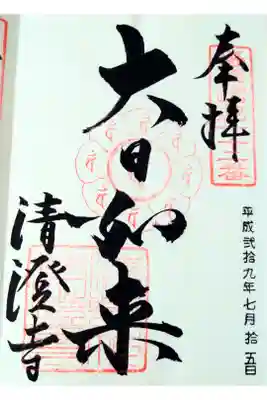 奉拝
平成弐拾九年七月拾五日
大日如来
清澄寺